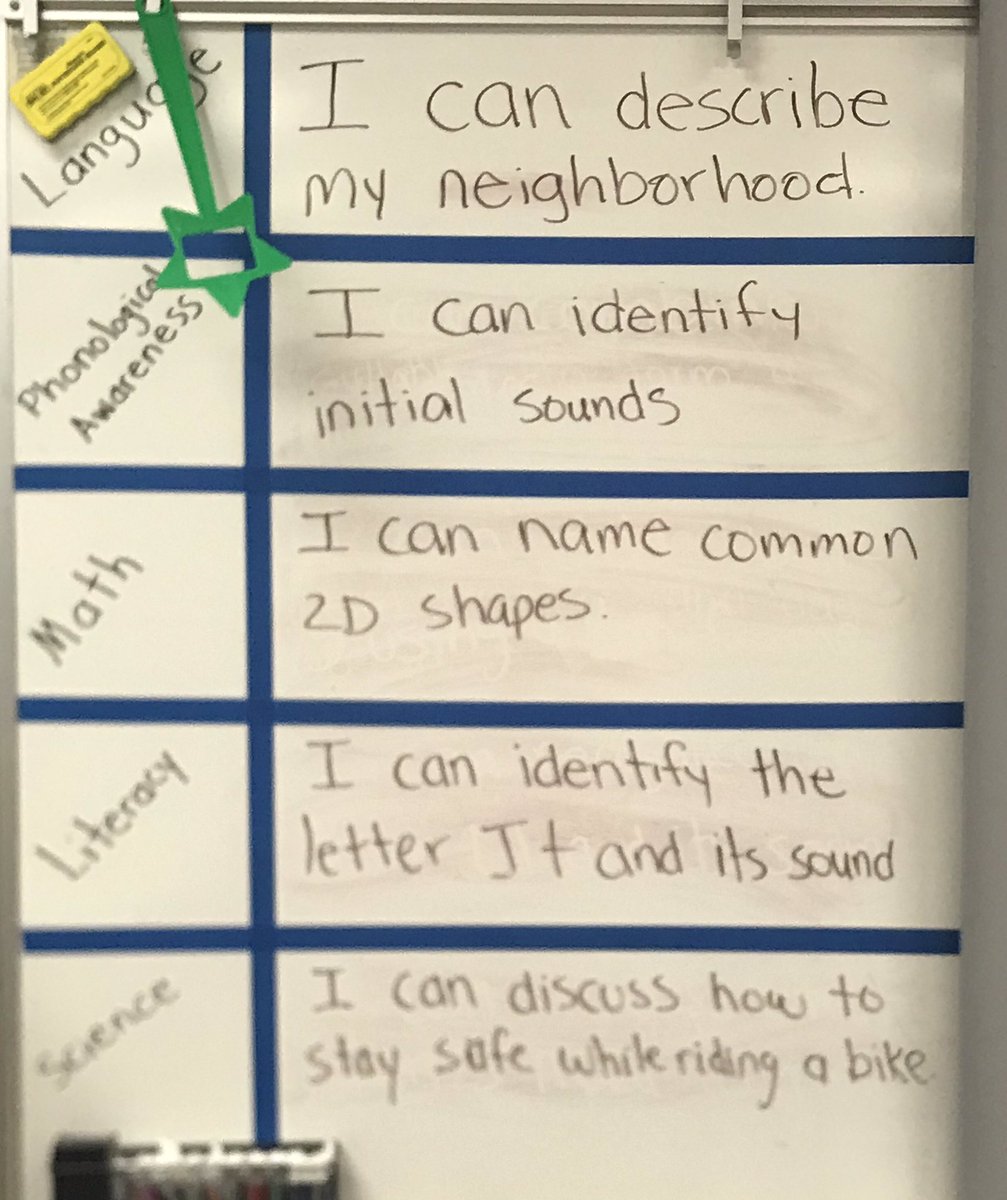 Language
I can describe
my neighborhood.
Phonological
Awareness
I can identify
initial sounds
Math
I can name common
2D shapes.
Literacy
I can identify the
letter J t and its sound
Science
I can discuss how to
stay safe while riding a bike